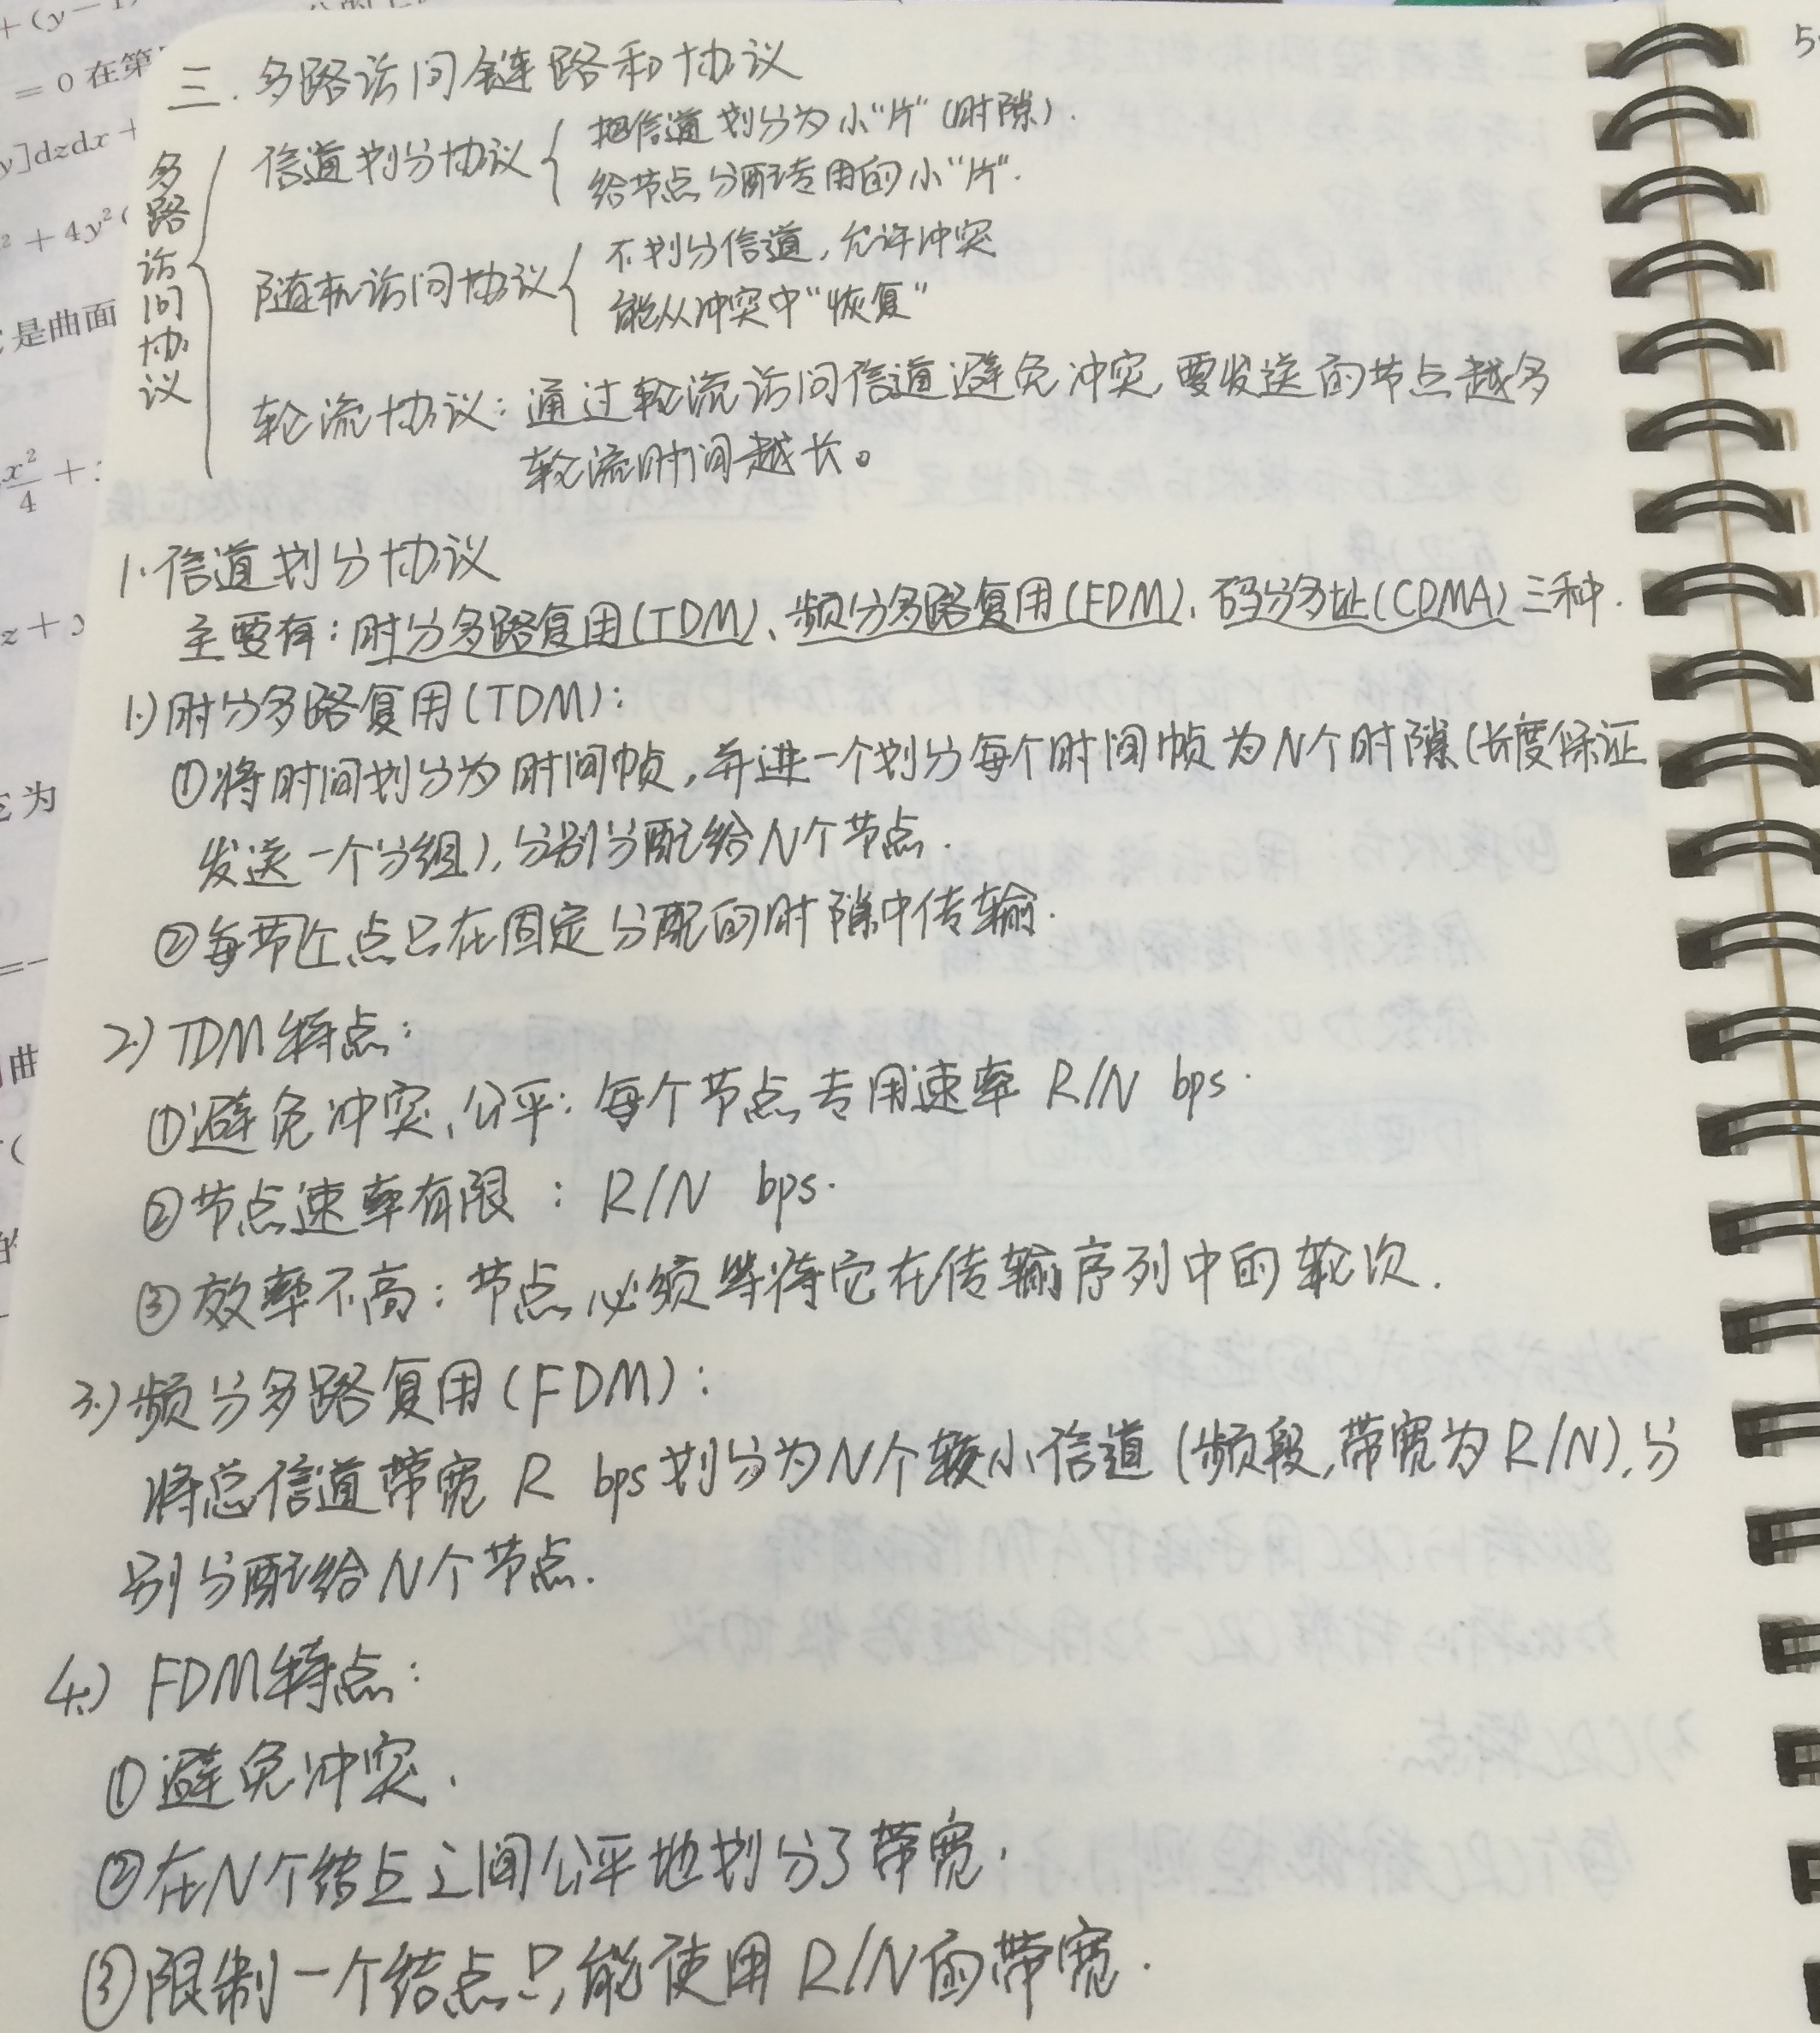 三.多路访问链路和协议
多路访问协议
信道划分协议
把信道划分为小“片”(时隙).
给节点分配专用的小“片”.
随机访问协议
不划分信道,允许冲突
能从冲突中“恢复”
轮流协议:通过轮流访问信道避免冲突,要发送的节点越多
轮流时间越长。
1.信道划分协议
主要有:时分多路复用(TDM)、频分多路复用(FDM)、码分多址(CDMA)三种.
1)时分多路复用(TDM):
①将时间划分为时间帧,并进一个划分每个时间帧为N个时隙(长度保证
发送一个分组),分别分配给N个节点.
②每节个点只在固定分配的时隙中传输.
2)TDM特点:
①避免冲突、公平:每个节点专用速率 R/N bps.
②节点速率有限:R/N bps.
③效率不高:节点必须等待它在传输序列中的轮次.
3)频分多路复用(FDM):
将总信道带宽 R bps划分为N个较小信道(频段,带宽为R/N),分
别分配给N个节点.
4.) FDM特点:
①避免冲突.
②在N个结点之间公平地划分了带宽.
③限制一个结点只能使用R/N的带宽.
+(y-1)
=0在第
y]dzdx+
+4y²(
是曲面
x²/4+
z+
为
曲
5